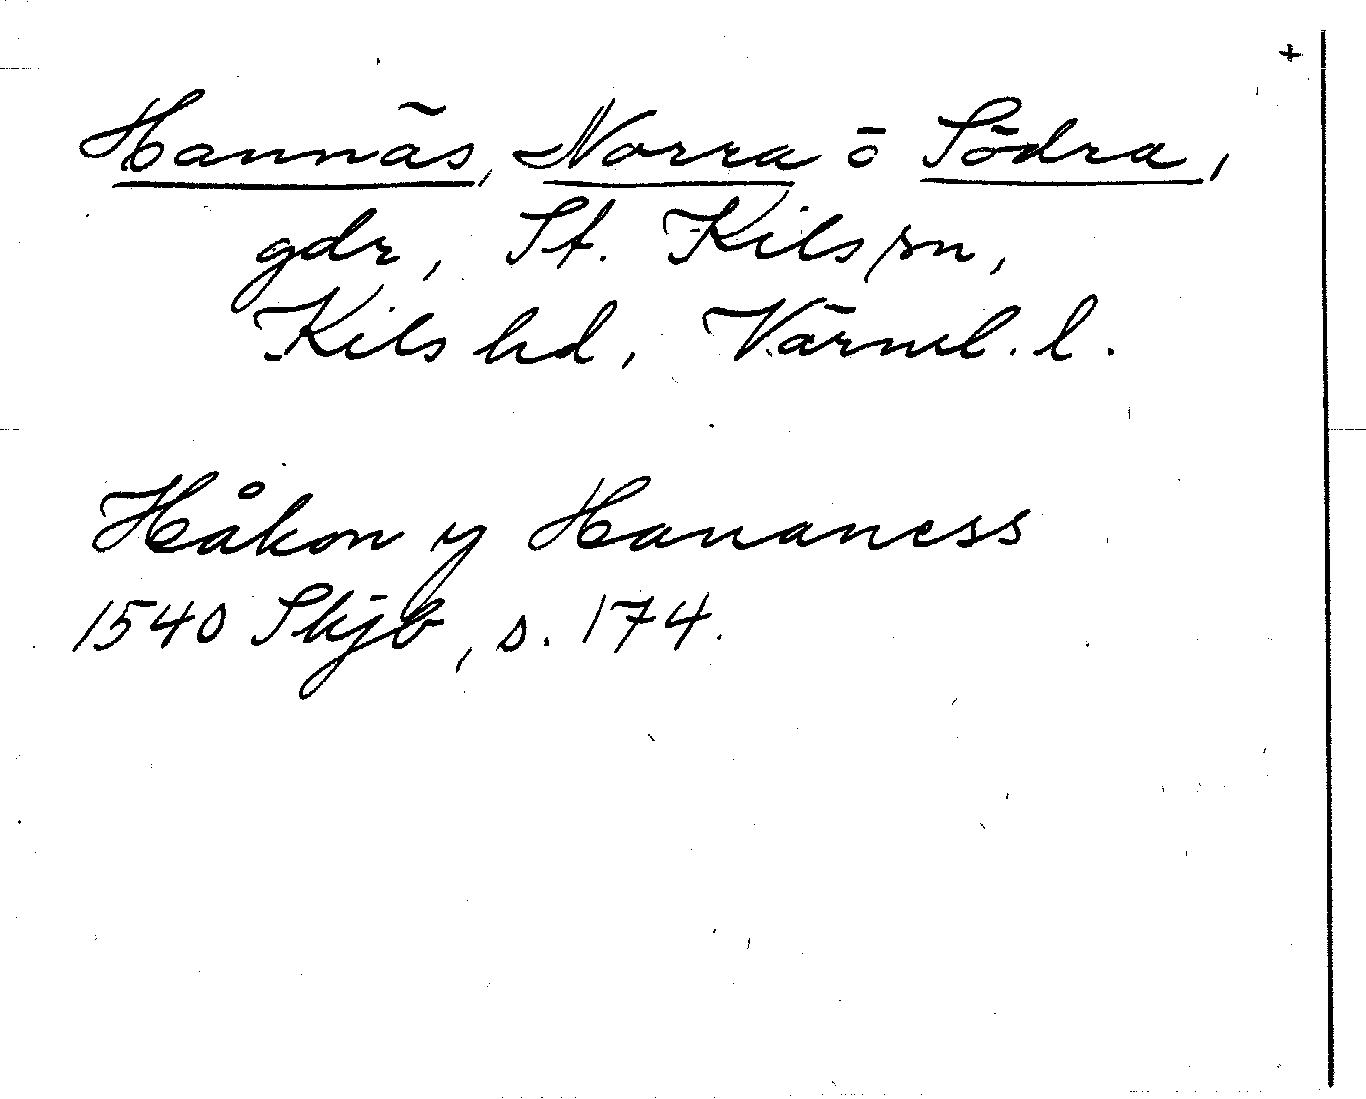 +
Hannäs, Norra o Södra,
gdr, St. Kils sn,
Kils hd, Värml. l.
Håkon y Hananess
1540 Skjb, s. 174.